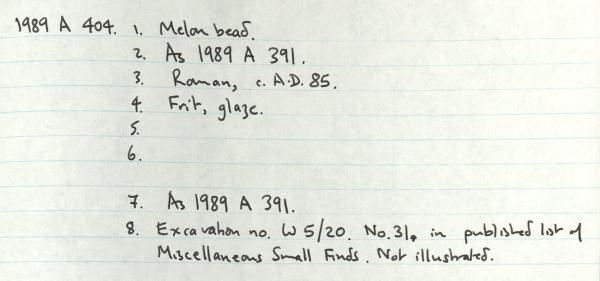 1989 A 404. 1. Melon bead.
2. As 1989 A 391.
3. Roman, c. A.D. 85.
4. Frit, glaze.
5.
6.
7. As 1989 A 391.
8. Excavation no. W 5/20. No. 31, in published list of
Miscellaneous Small Finds. Not illustrated.